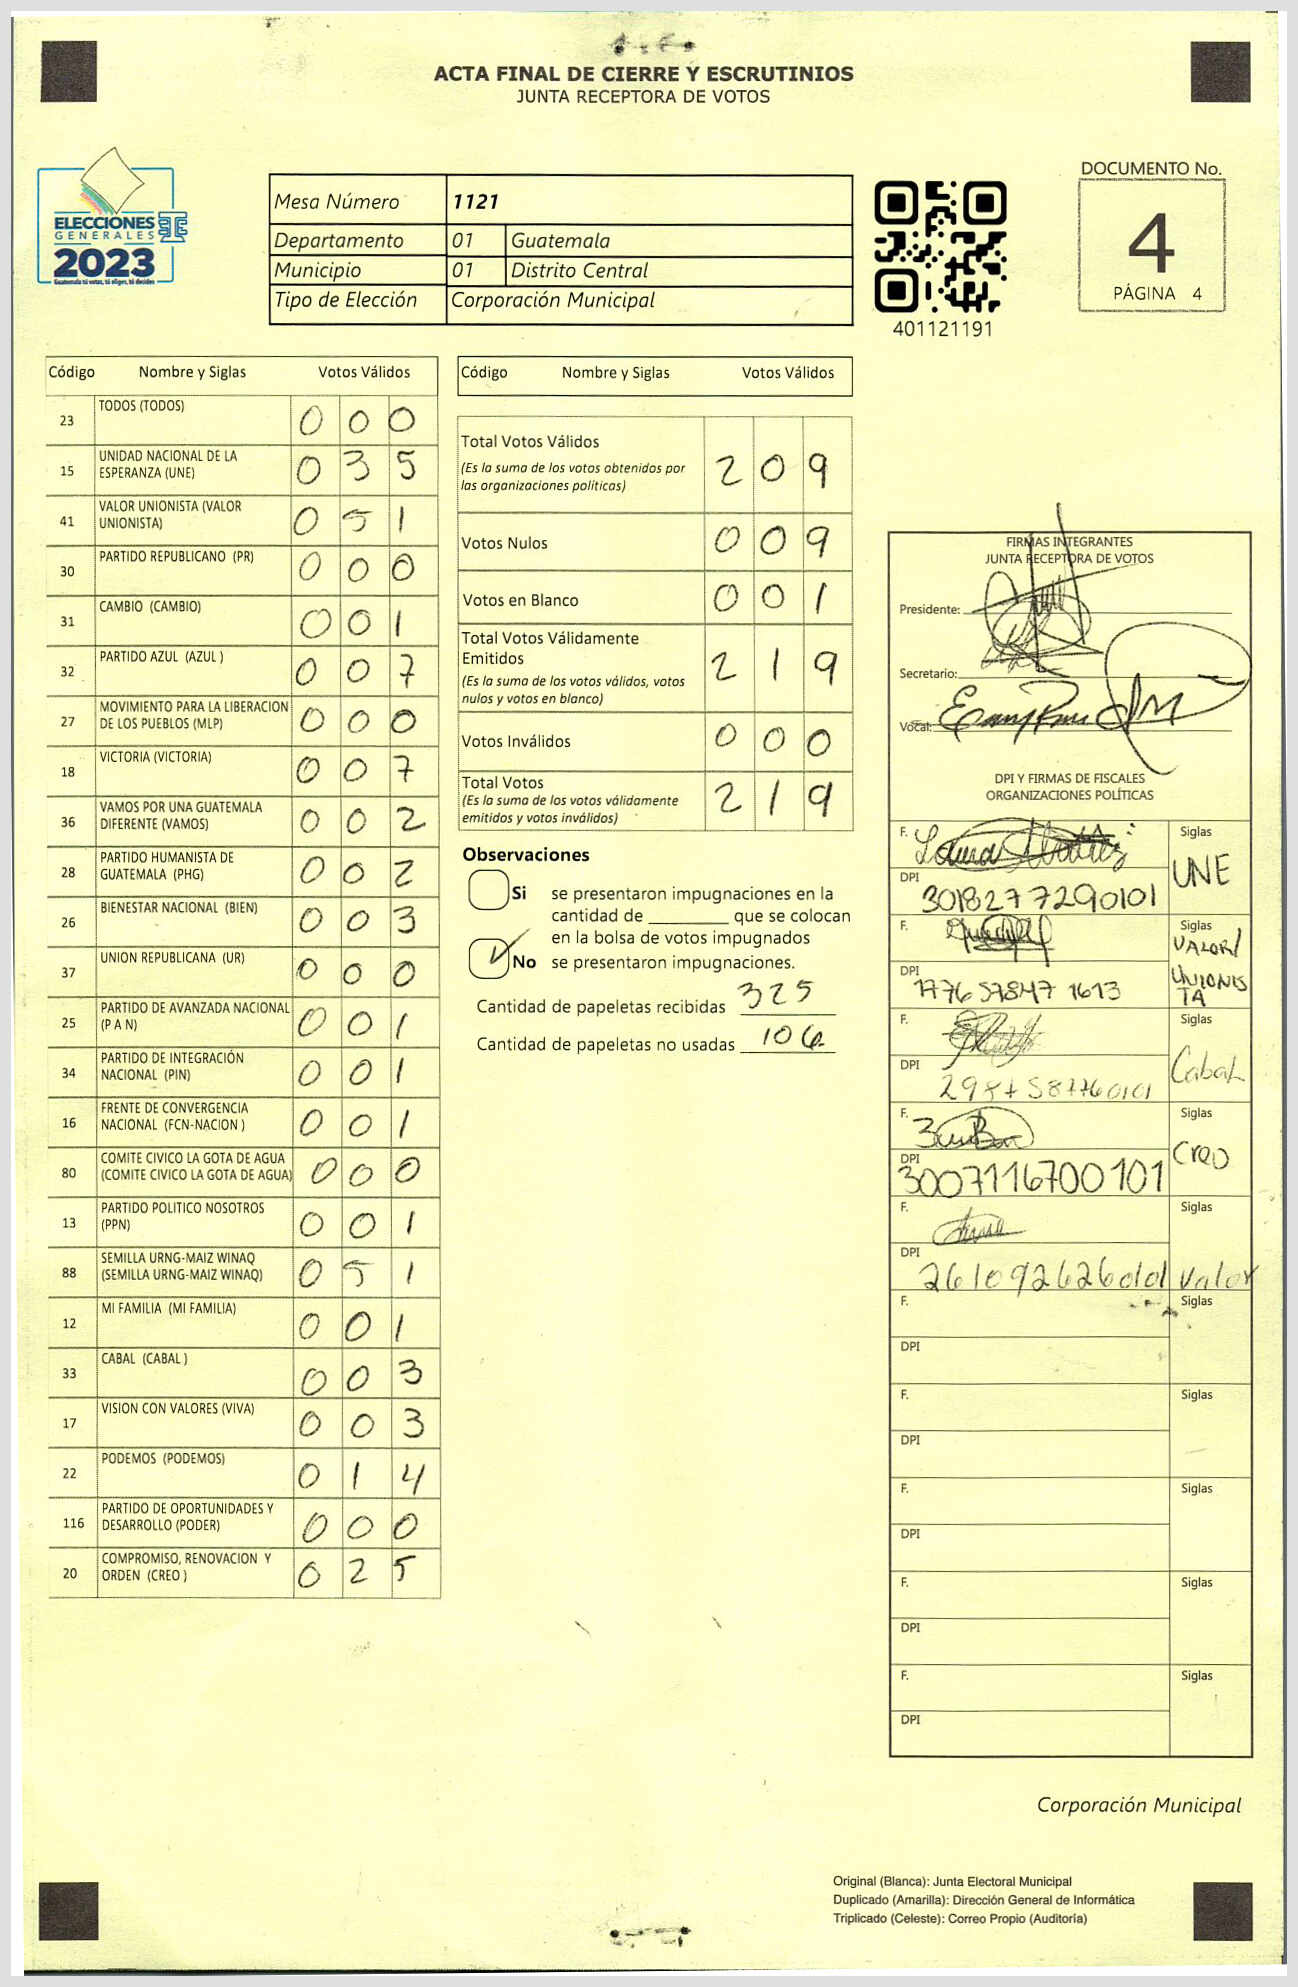 ACTA FINAL DE CIERRE Y ESCRUTINIOS
JUNTA RECEPTORA DE VOTOS
ELECCIONES
GENERALES
2023
Guatemala tú votas, tú eliges, tú decides
Mesa Número 1121
Departamento 01 Guatemala
Municipio 01 Distrito Central
Tipo de Elección Corporación Municipal
401121191
DOCUMENTO No.
4
PÁGINA 4
Código Nombre y Siglas Votos Válidos
23 TODOS (TODOS) 0 0 0
15 UNIDAD NACIONAL DE LA ESPERANZA (UNE) 0 3 5
41 VALOR UNIONISTA (VALOR UNIONISTA) 0 5 1
30 PARTIDO REPUBLICANO (PR) 0 0 0
31 CAMBIO (CAMBIO) 0 0 1
32 PARTIDO AZUL (AZUL ) 0 0 7
27 MOVIMIENTO PARA LA LIBERACION DE LOS PUEBLOS (MLP) 0 0 0
18 VICTORIA (VICTORIA) 0 0 7
36 VAMOS POR UNA GUATEMALA DIFERENTE (VAMOS) 0 0 2
28 PARTIDO HUMANISTA DE GUATEMALA (PHG) 0 0 2
26 BIENESTAR NACIONAL (BIEN) 0 0 3
37 UNION REPUBLICANA (UR) 0 0 0
25 PARTIDO DE AVANZADA NACIONAL (P A N) 0 0 1
34 PARTIDO DE INTEGRACIÓN NACIONAL (PIN) 0 0 1
16 FRENTE DE CONVERGENCIA NACIONAL (FCN-NACION ) 0 0 1
80 COMITE CIVICO LA GOTA DE AGUA (COMITE CIVICO LA GOTA DE AGUA) 0 0 0
13 PARTIDO POLITICO NOSOTROS (PPN) 0 0 1
88 SEMILLA URNG-MAIZ WINAQ (SEMILLA URNG-MAIZ WINAQ) 0 5 1
12 MI FAMILIA (MI FAMILIA) 0 0 1
33 CABAL (CABAL ) 0 0 3
17 VISION CON VALORES (VIVA) 0 0 3
22 PODEMOS (PODEMOS) 0 1 4
116 PARTIDO DE OPORTUNIDADES Y DESARROLLO (PODER) 0 0 0
20 COMPROMISO, RENOVACION Y ORDEN (CREO ) 0 2 5
Código Nombre y Siglas Votos Válidos
Total Votos Válidos 2 0 9
(Es la suma de los votos obtenidos por
las organizaciones políticas)
Votos Nulos 0 0 9
Votos en Blanco 0 0 1
Total Votos Válidamente
Emitidos 2 1 9
(Es la suma de los votos válidos, votos
nulos y votos en blanco)
Votos Inválidos 0 0 0
Total Votos 2 1 9
(Es la suma de los votos válidamente
emitidos y votos inválidos)
Observaciones
Si se presentaron impugnaciones en la
cantidad de ________ que se colocan
en la bolsa de votos impugnados
No se presentaron impugnaciones.
Cantidad de papeletas recibidas 325
Cantidad de papeletas no usadas 106
FIRMAS INTEGRANTES
JUNTA RECEPTORA DE VOTOS
Presidente:
Secretario:
Vocal:
DPI Y FIRMAS DE FISCALES
ORGANIZACIONES POLÍTICAS
F. Siglas
DPI 3018277290101 UNE
F. Siglas
DPI 1776 57847 1613 VALOR/
UNIONIS
TA
F. Siglas
DPI Cabal
F. Siglas
DPI 3007116700101 Creo
F. Siglas
DPI 2610926260101 Valor
F. Siglas
DPI
F. Siglas
DPI
F. Siglas
DPI
F. Siglas
DPI
F. Siglas
DPI
Corporación Municipal
Original (Blanca): Junta Electoral Municipal
Duplicado (Amarilla): Dirección General de Informática
Triplicado (Celeste): Correo Propio (Auditoría)